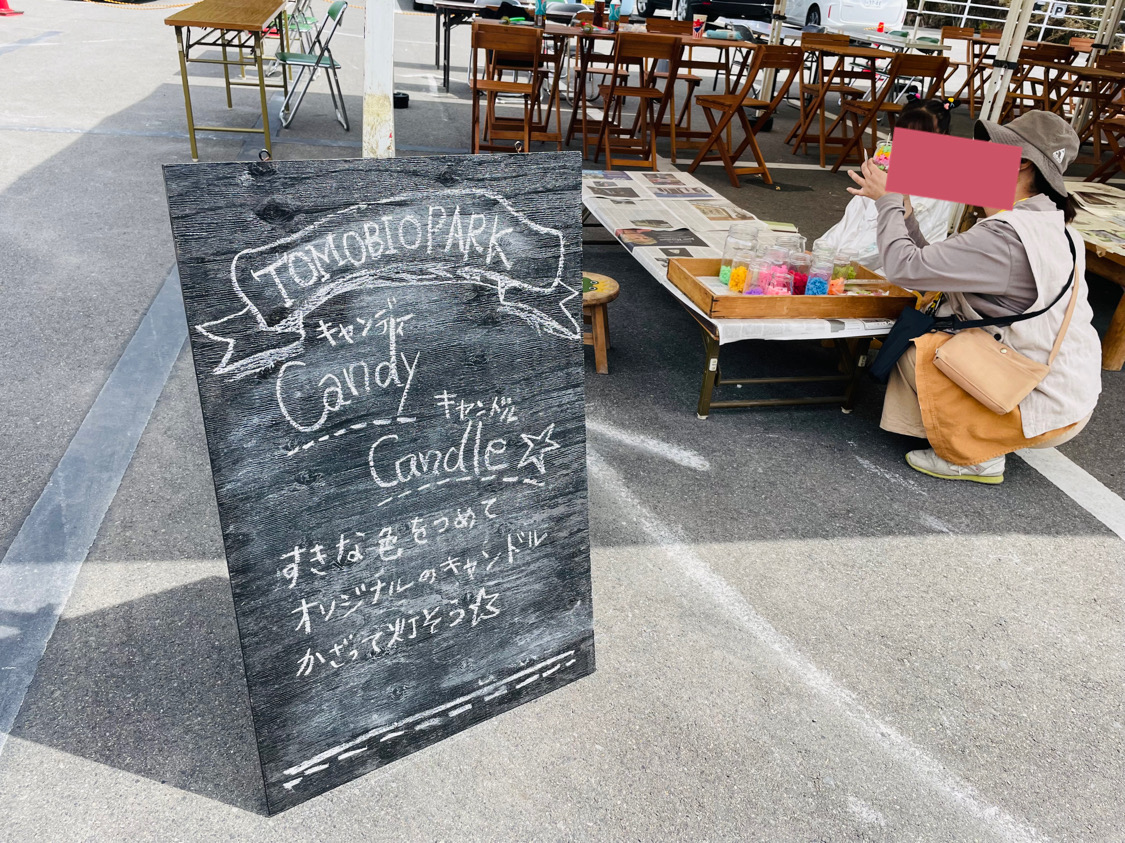 TOMOBIOPARK
キャンディ
Candy
キャンドル
Candle☆
すきな色をつめて
オリジナルのキャンドル
かざって灯そう☆